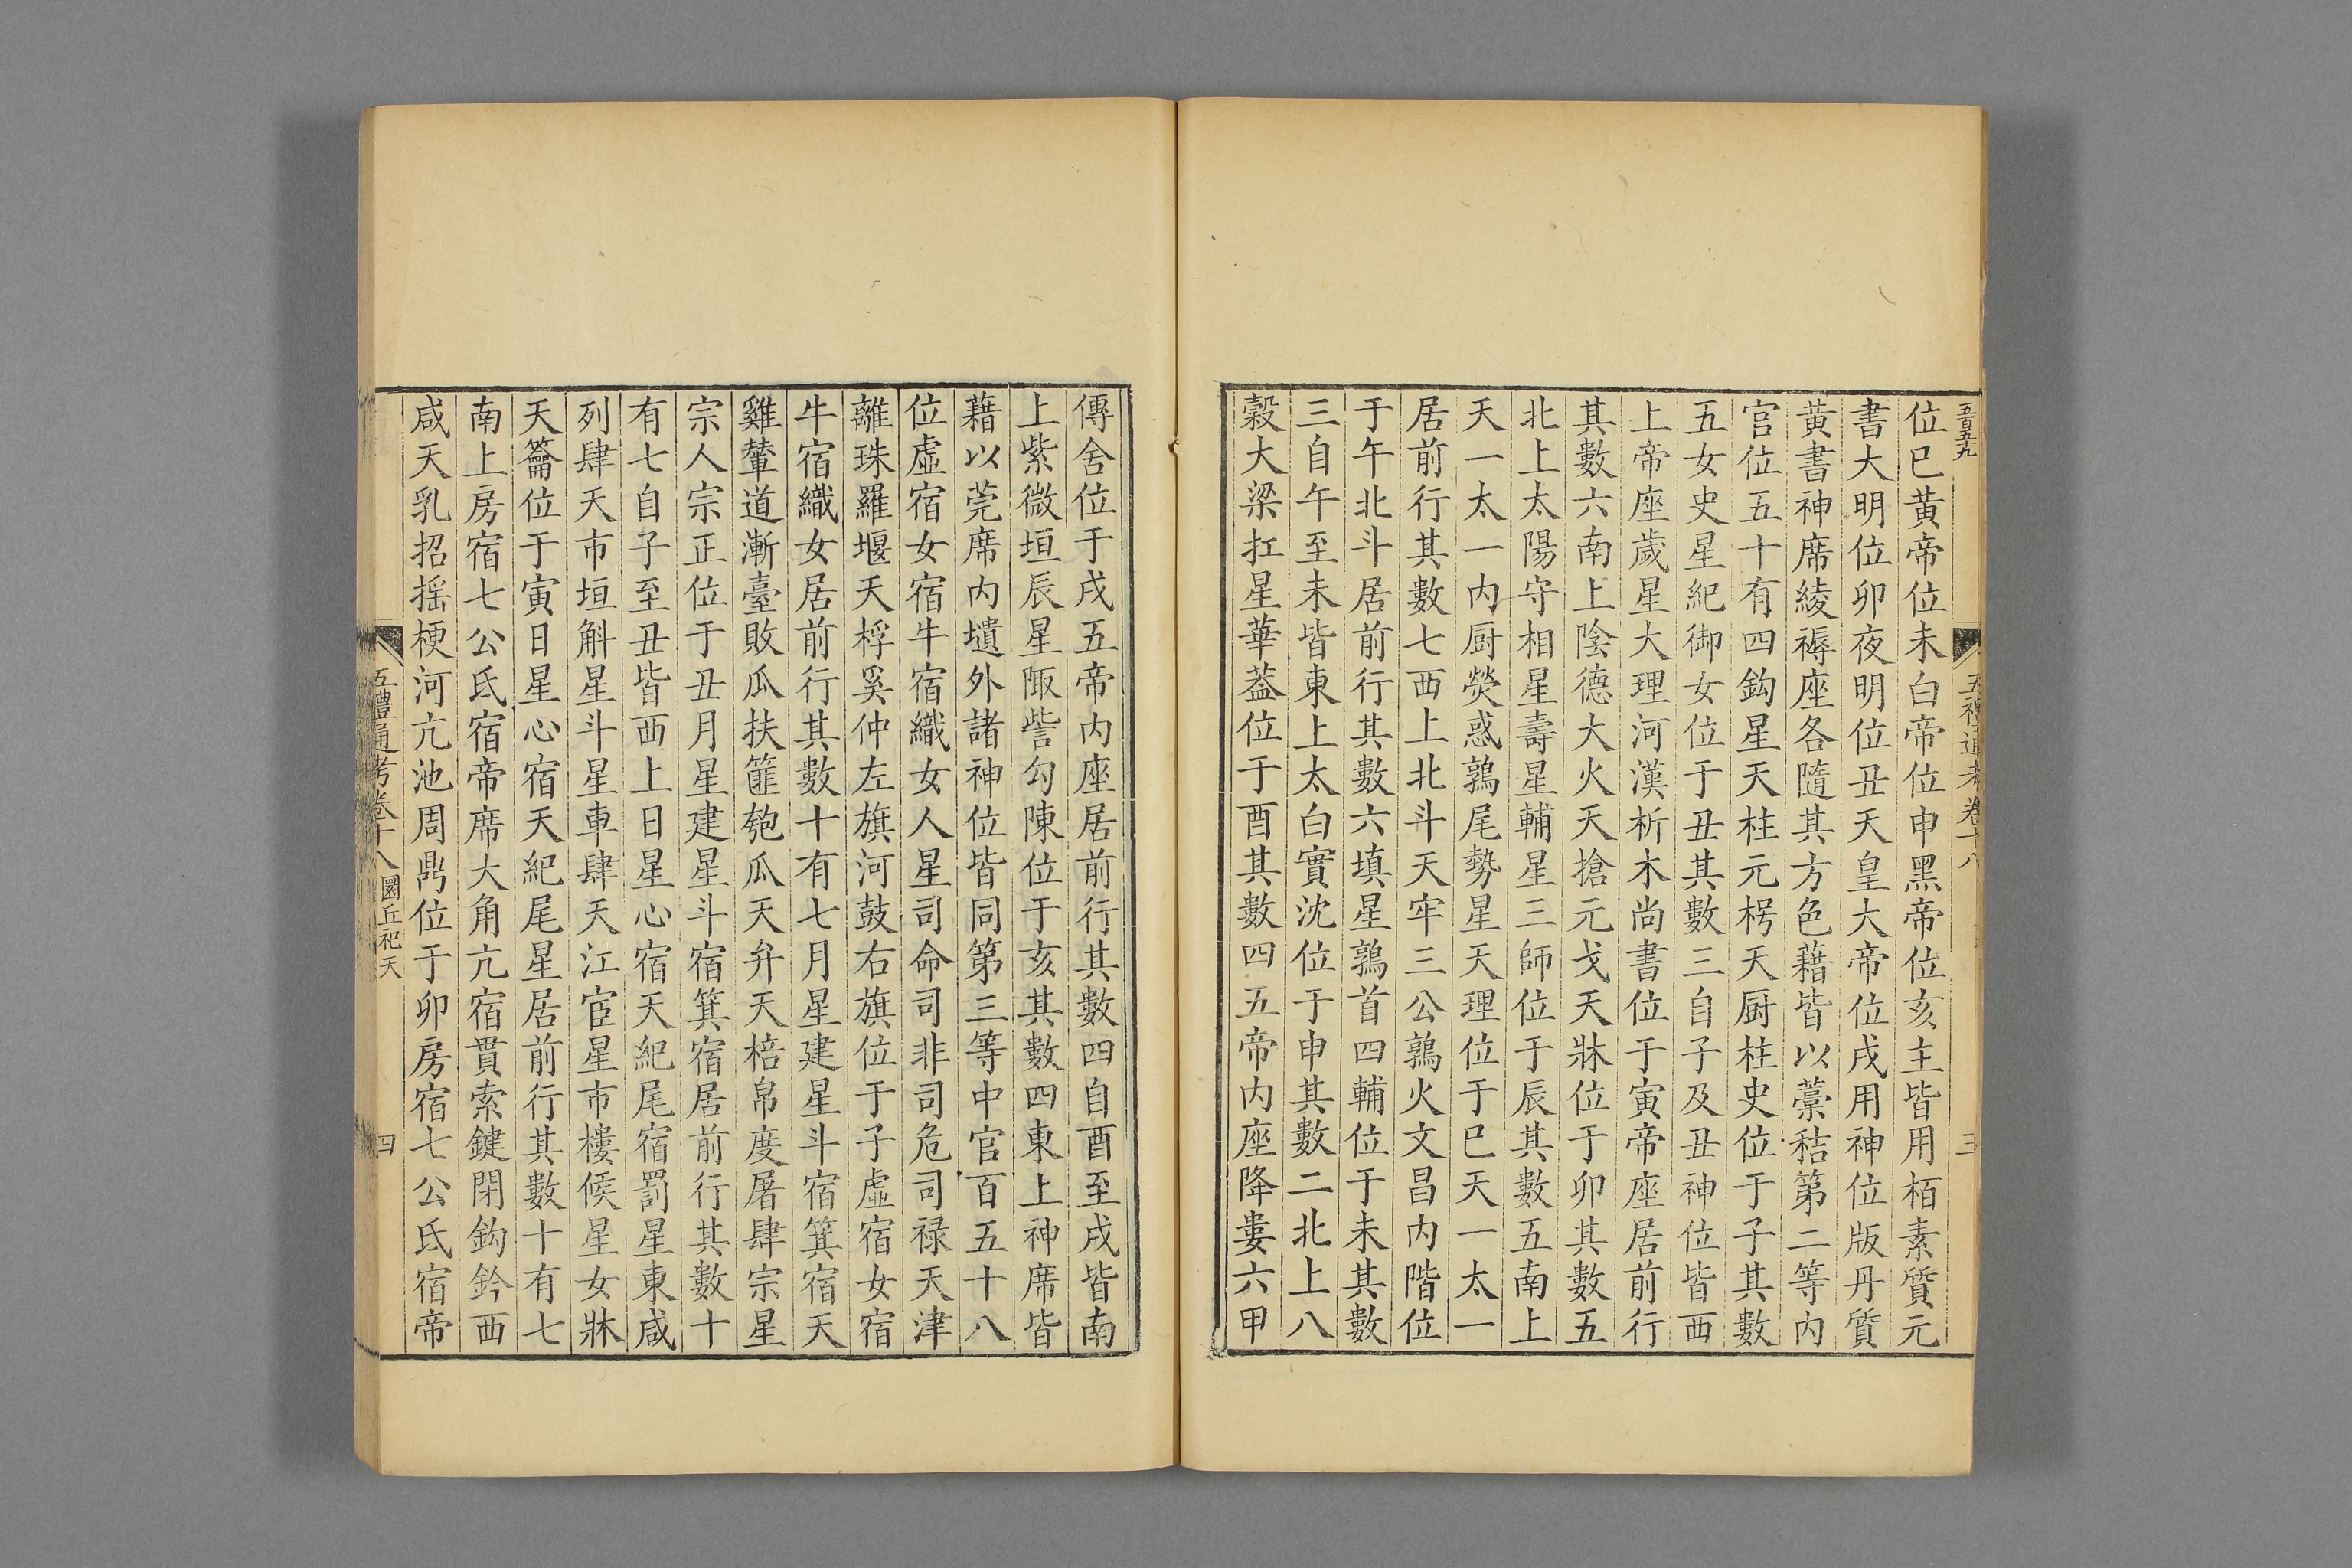 五百五九
五禮通考卷十八
三
位巳黄帝位未白帝位申黑帝位亥主皆用栢素質元
書大明位卯夜明位丑天皇大帝位戌用神位版丹質
黄書神席綾褥座各隨其方色藉皆以藁秸第二等内
官位五十有四鈎星天柱元枵天厨柱史位于子其數
五女史星紀御女位于丑其數三自子及丑神位皆西
上帝座歲星大理河漢析木尚書位于寅帝座居前行
其數六南上陰德大火天搶元戈天牀位于卯其數五
北上太陽守相星壽星輔星三師位于辰其數五南上
天一太一内厨熒惑鶉尾勢星天理位于巳天一太一
居前行其數七西上北斗天牢三公鶉火文昌内階位
于午北斗居前行其數六填星鶉首四輔位于未其數
三自午至未皆東上太白實沈位于申其數二北上八
穀大梁扛星華葢位于酉其數四五帝内座降婁六甲
傳舍位于戌五帝内座居前行其數四自酉至戌皆南
上紫微垣辰星陬訾勾陳位于亥其數四東上神席皆
藉以莞席内壝外諸神位皆同第三等中官百五十八
位虛宿女宿牛宿織女人星司命司非司危司禄天津
離珠羅堰天桴奚仲左旗河鼓右旗位于子虛宿女宿
牛宿織女居前行其數十有七月星建星斗宿箕宿天
雞輦道漸臺敗瓜扶筐匏瓜天弁天棓帛度屠肆宗星
宗人宗正位于丑月星建星斗宿箕宿居前行其數十
有七自子至丑皆西上日星心宿天紀尾宿罰星東咸
列肆天市垣斛星斗星車肆天江宦星市樓候星女牀
天籥位于寅日星心宿天紀尾星居前行其數十有七
南上房宿七公氐宿帝席大角亢宿貫索鍵閉鈎鈐西
咸天乳招摇梗河亢池周鼎位于卯房宿七公氐宿帝
五禮通考卷十八 圜丘祀天
四